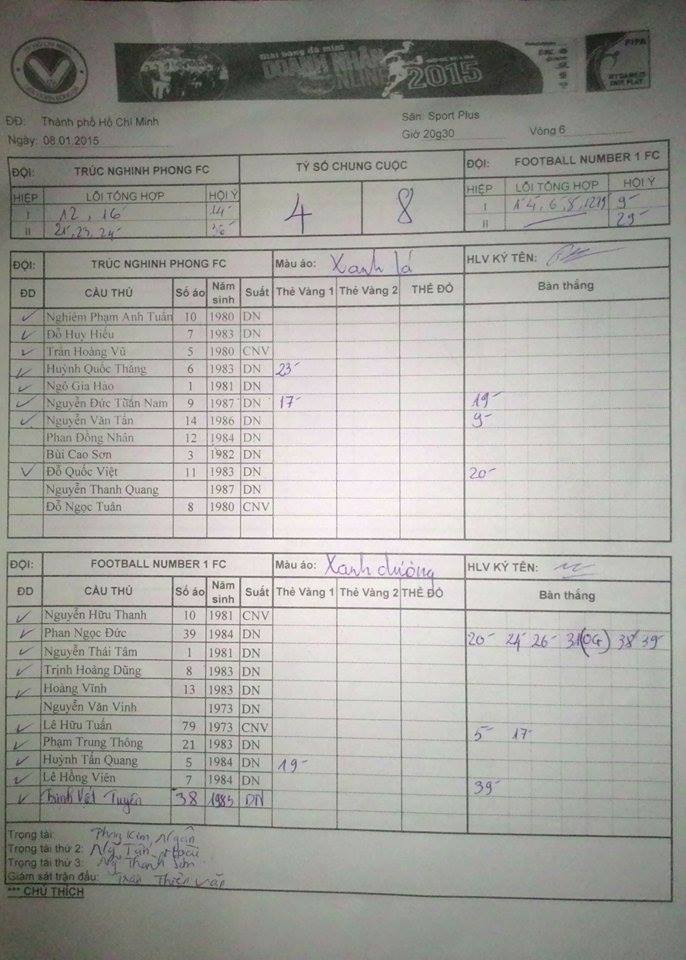 Giải bóng đá mini
DOANH NHÂN
ONLINE 2015
FIFA
MY GAME IS FAIR PLAY
ĐĐ: Thành phố Hồ Chí Minh Sân: Sport Plus
Ngày: 08.01.2015 Giờ 20g30 Vòng 6
ĐỘI: TRÚC NGHINH PHONG FC TỶ SỐ CHUNG CUỘC ĐỘI: FOOTBALL NUMBER 1 FC
HIỆP LỖI TỔNG HỢP HỘI Ý 4 8 HIỆP LỖI TỔNG HỢP HỘI Ý
I 12, 16 14- I 4, 6, 8, 9-
II 21, 23, 24- 36- II 29-
ĐỘI: TRÚC NGHINH PHONG FC Màu áo: Xanh lá HLV KÝ TÊN:
ĐD CẦU THỦ Số áo Năm sinh Suất Thẻ Vàng 1 Thẻ Vàng 2 THẺ ĐỎ Bàn thắng
✓ Nghiêm Phạm Anh Tuấn 10 1980 DN
✓ Đỗ Huy Hiếu 7 1983 DN
✓ Trần Hoàng Vũ 5 1980 CNV
✓ Huỳnh Quốc Thắng 6 1983 DN 23-
✓ Ngô Gia Hào 1 1981 DN
✓ Nguyễn Đức Tuấn Nam 9 1987 DN 17- 19-
✓ Nguyễn Văn Tấn 14 1986 DN 9-
Phan Đồng Nhân 12 1984 DN
Bùi Cao Sơn 3 1982 DN
✓ Đỗ Quốc Việt 11 1983 DN 20-
Nguyễn Thanh Quang 1987 DN
Đỗ Ngọc Tuấn 8 1980 CNV
ĐỘI: FOOTBALL NUMBER 1 FC Màu áo: Xanh dương HLV KÝ TÊN:
ĐD CẦU THỦ Số áo Năm sinh Suất Thẻ Vàng 1 Thẻ Vàng 2 THẺ ĐỎ Bàn thắng
✓ Nguyễn Hữu Thanh 10 1981 CNV
✓ Phan Ngọc Đức 39 1984 DN 20- 24- 26- 31(OG) 38- 39-
✓ Nguyễn Thái Tâm 1 1981 DN
✓ Trịnh Hoàng Dũng 8 1983 DN
✓ Hoàng Vĩnh 13 1983 DN
Nguyễn Văn Vinh 1973 DN
✓ Lê Hữu Tuấn 79 1973 CNV 5- 17-
✓ Phạm Trung Thông 21 1983 DN
✓ Huỳnh Tấn Quang 5 1984 DN 19-
✓ Lê Hồng Viên 7 1984 DN 39-
✓ Trịnh Việt Tuyên 38 1983 DN
Trọng tài: Phùng Kim Ngân
Trọng tài thứ 2: Ng Tấn
Trọng tài thứ 3: Ng Thanh Sơn
Giám sát trận đấu: Trần Thiên Văn
*** CHÚ THÍCH